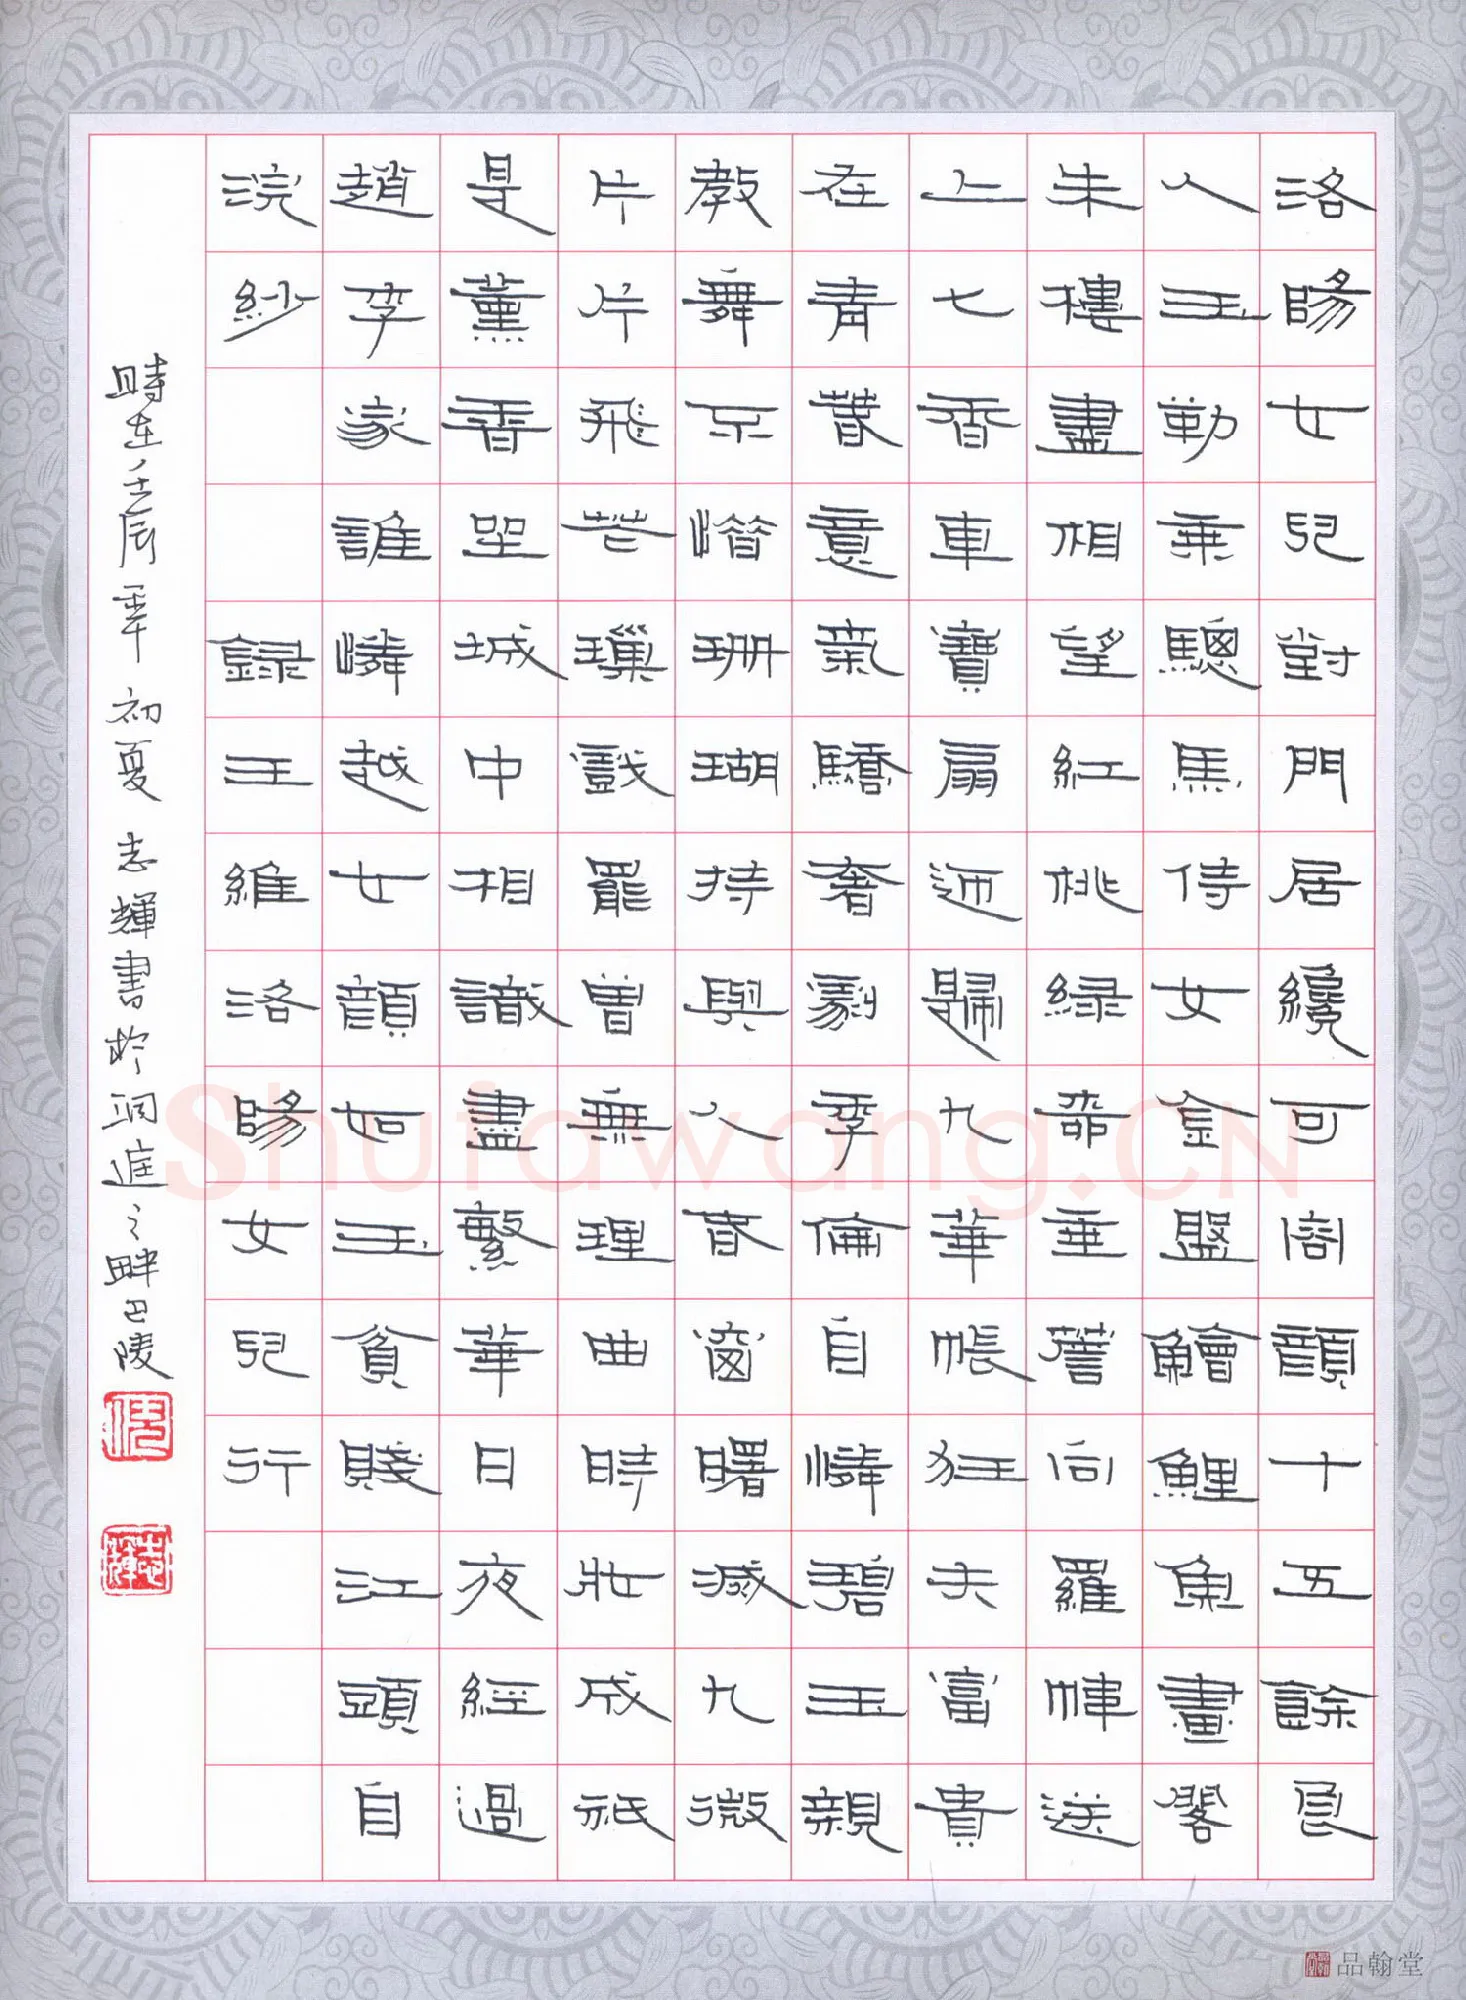 洛陽女兒對門居纔可容顏十五餘良
人玉勒乘驄馬侍女金盤鱠鯉魚畫閣
朱樓盡相望紅桃綠柳垂簷向羅幃送
上七香車寶扇迎歸九華帳狂夫富貴
在青春意氣驕奢劇季倫自憐碧玉親
教舞不惜珊瑚持與人春窗曙滅九微
片片飛花璅戲罷曾無理曲時妝成祇
是薰香坐城中相識盡繁華日夜經過
趙李家誰憐越女顏如玉貧賤江頭自
浣紗 錄王維洛陽女兒行
時在壬辰年初夏志輝書於洞庭之畔巴陵
志輝
品翰堂
Shufawang.CN